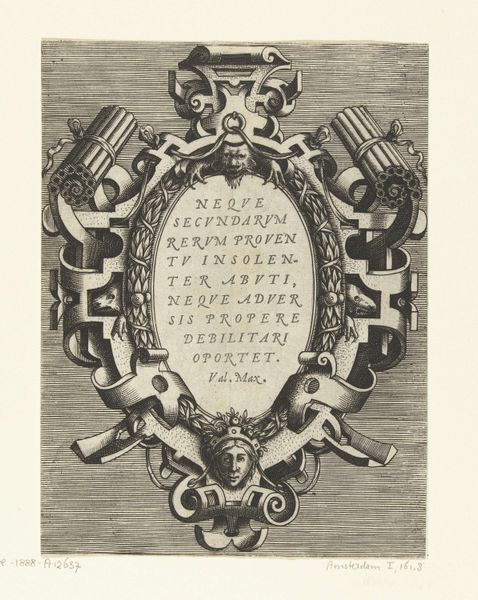 NEQVE
SECVNDARVM
RERVM PROVEN
TV INSOLEN-
TER ABVTI,
NEQVE ADVER
SIS PROPERE
DEBILITARI
OPORTET.
Val. Max.
-1888-A12637
Amsterdam I, 161.8